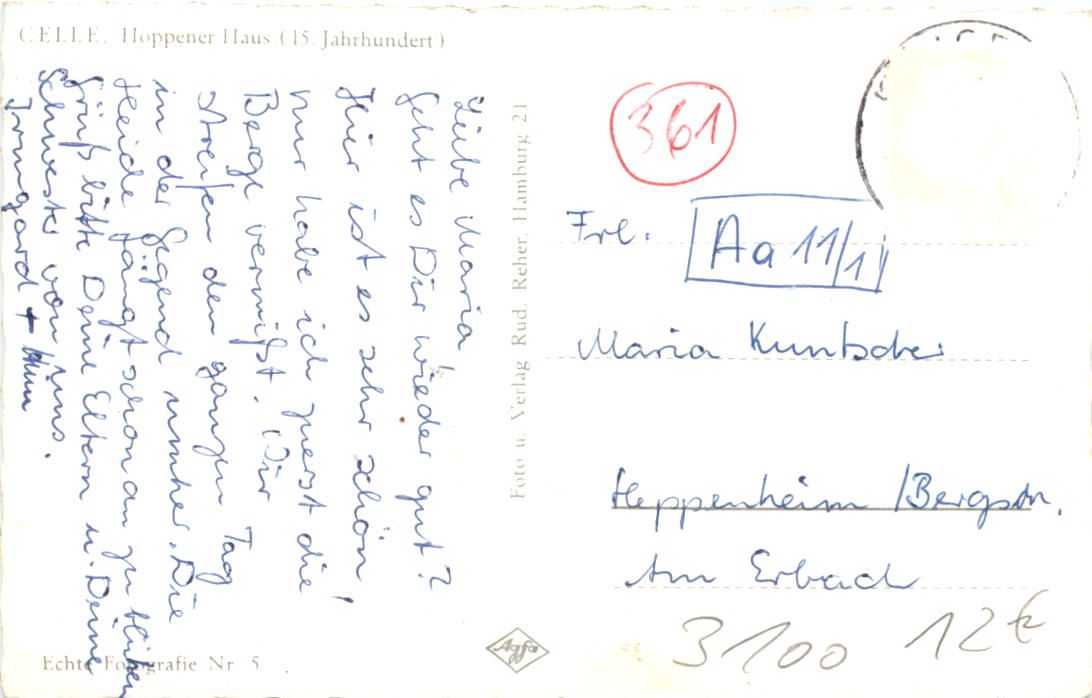 CELLE. Hoppener Haus (15. Jahrhundert)
Liebe Maria
Geht es Dir wieder gut?
Hier ist es sehr schön!
Nur habe ich zuerst die
Berge vermißt. Wir
streifen den ganzen Tag
in der Gegend umher. Die
Heide fängt schon an zu blühen
Grüß bitte Deine Eltern u. Deine
Schwester von uns.
Irmgard +
Echte Fotografie Nr. 5
Foto u. Verlag Rud. Reher, Hamburg 21
Agfa
361
Frl.
Aa 11/1
Maria Kuntscher
Heppenheim /Bergstr.
Am Erbach
3100 12€